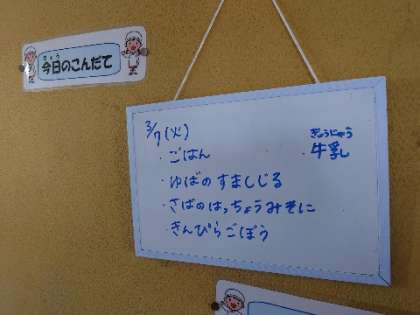 きょう
今日のこんだて
3/7(火)
・ごはん
ぎゅうにゅう
牛乳
・ゆばのすましじる
・さばのはっちょうみそに
・きんぴらごぼう